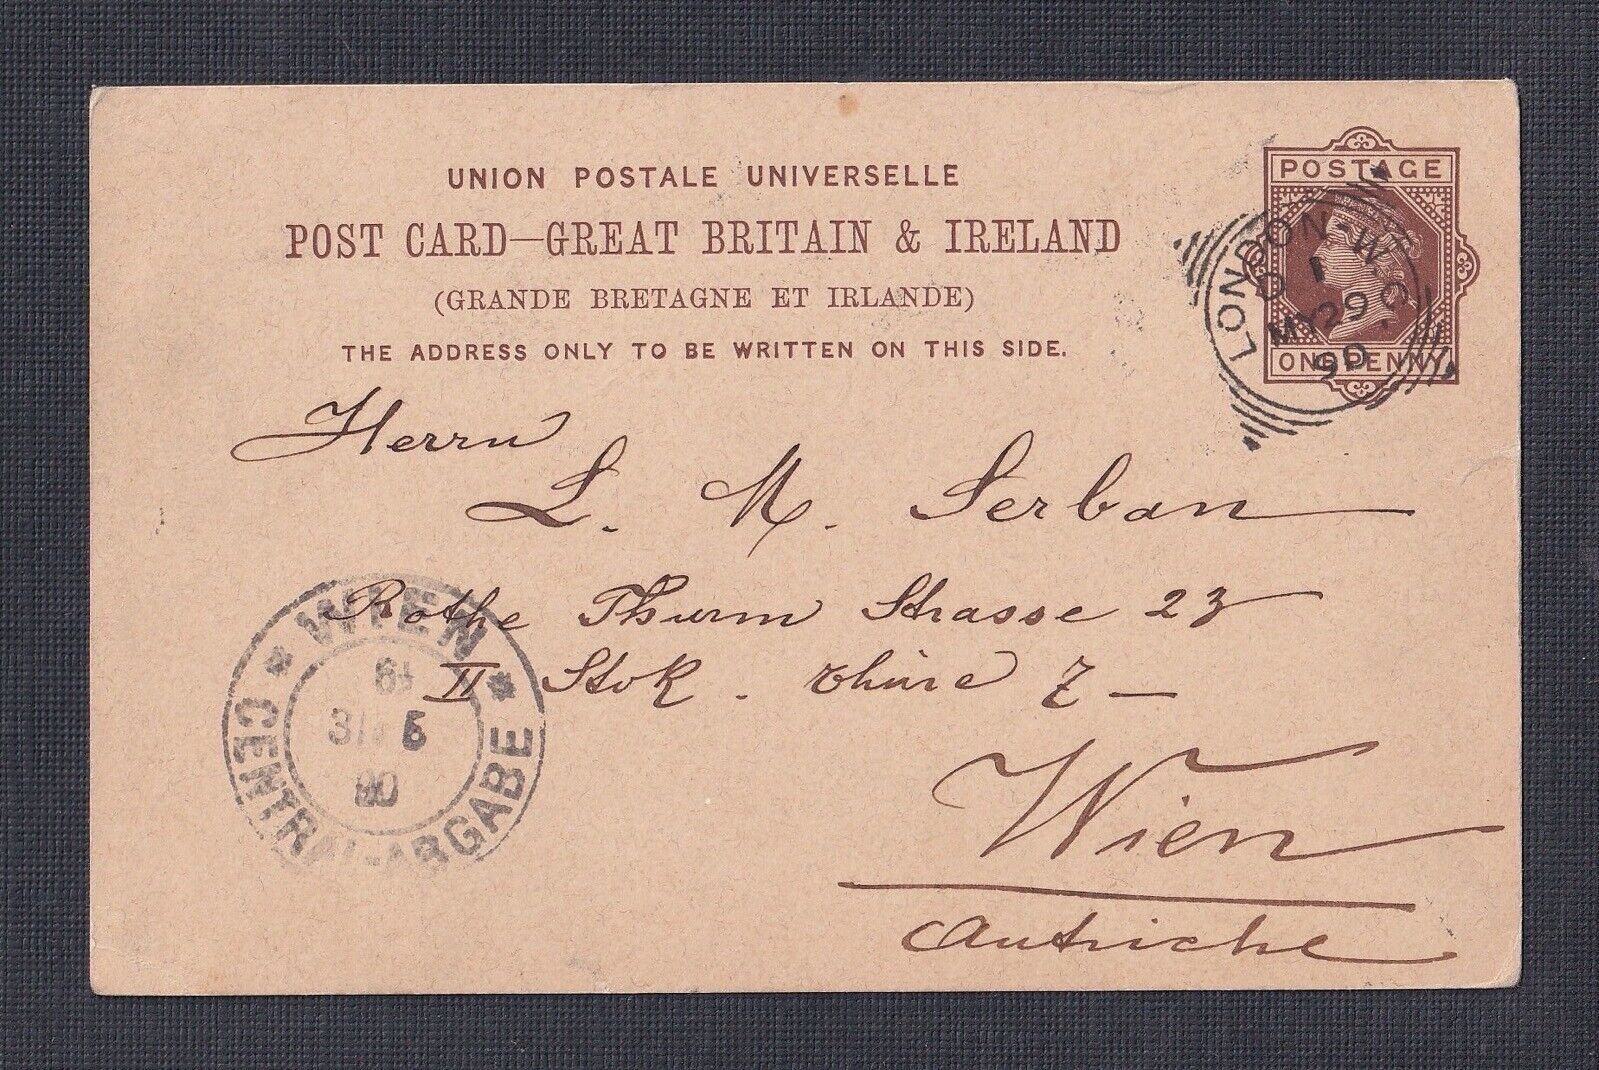 UNION POSTALE UNIVERSELLE
POST CARD—GREAT BRITAIN & IRELAND
(GRANDE BRETAGNE ET IRLANDE)
THE ADDRESS ONLY TO BE WRITTEN ON THIS SIDE.
POSTAGE
ONE PENNY
LONDON·W.
MY 29
90
Herrn
L. M. Serban
Rothe Thurm Strasse 23
II Stok. thüre 7
Wien
Autriche
WIEN
31 5
90
CENTRAL-ABGABE